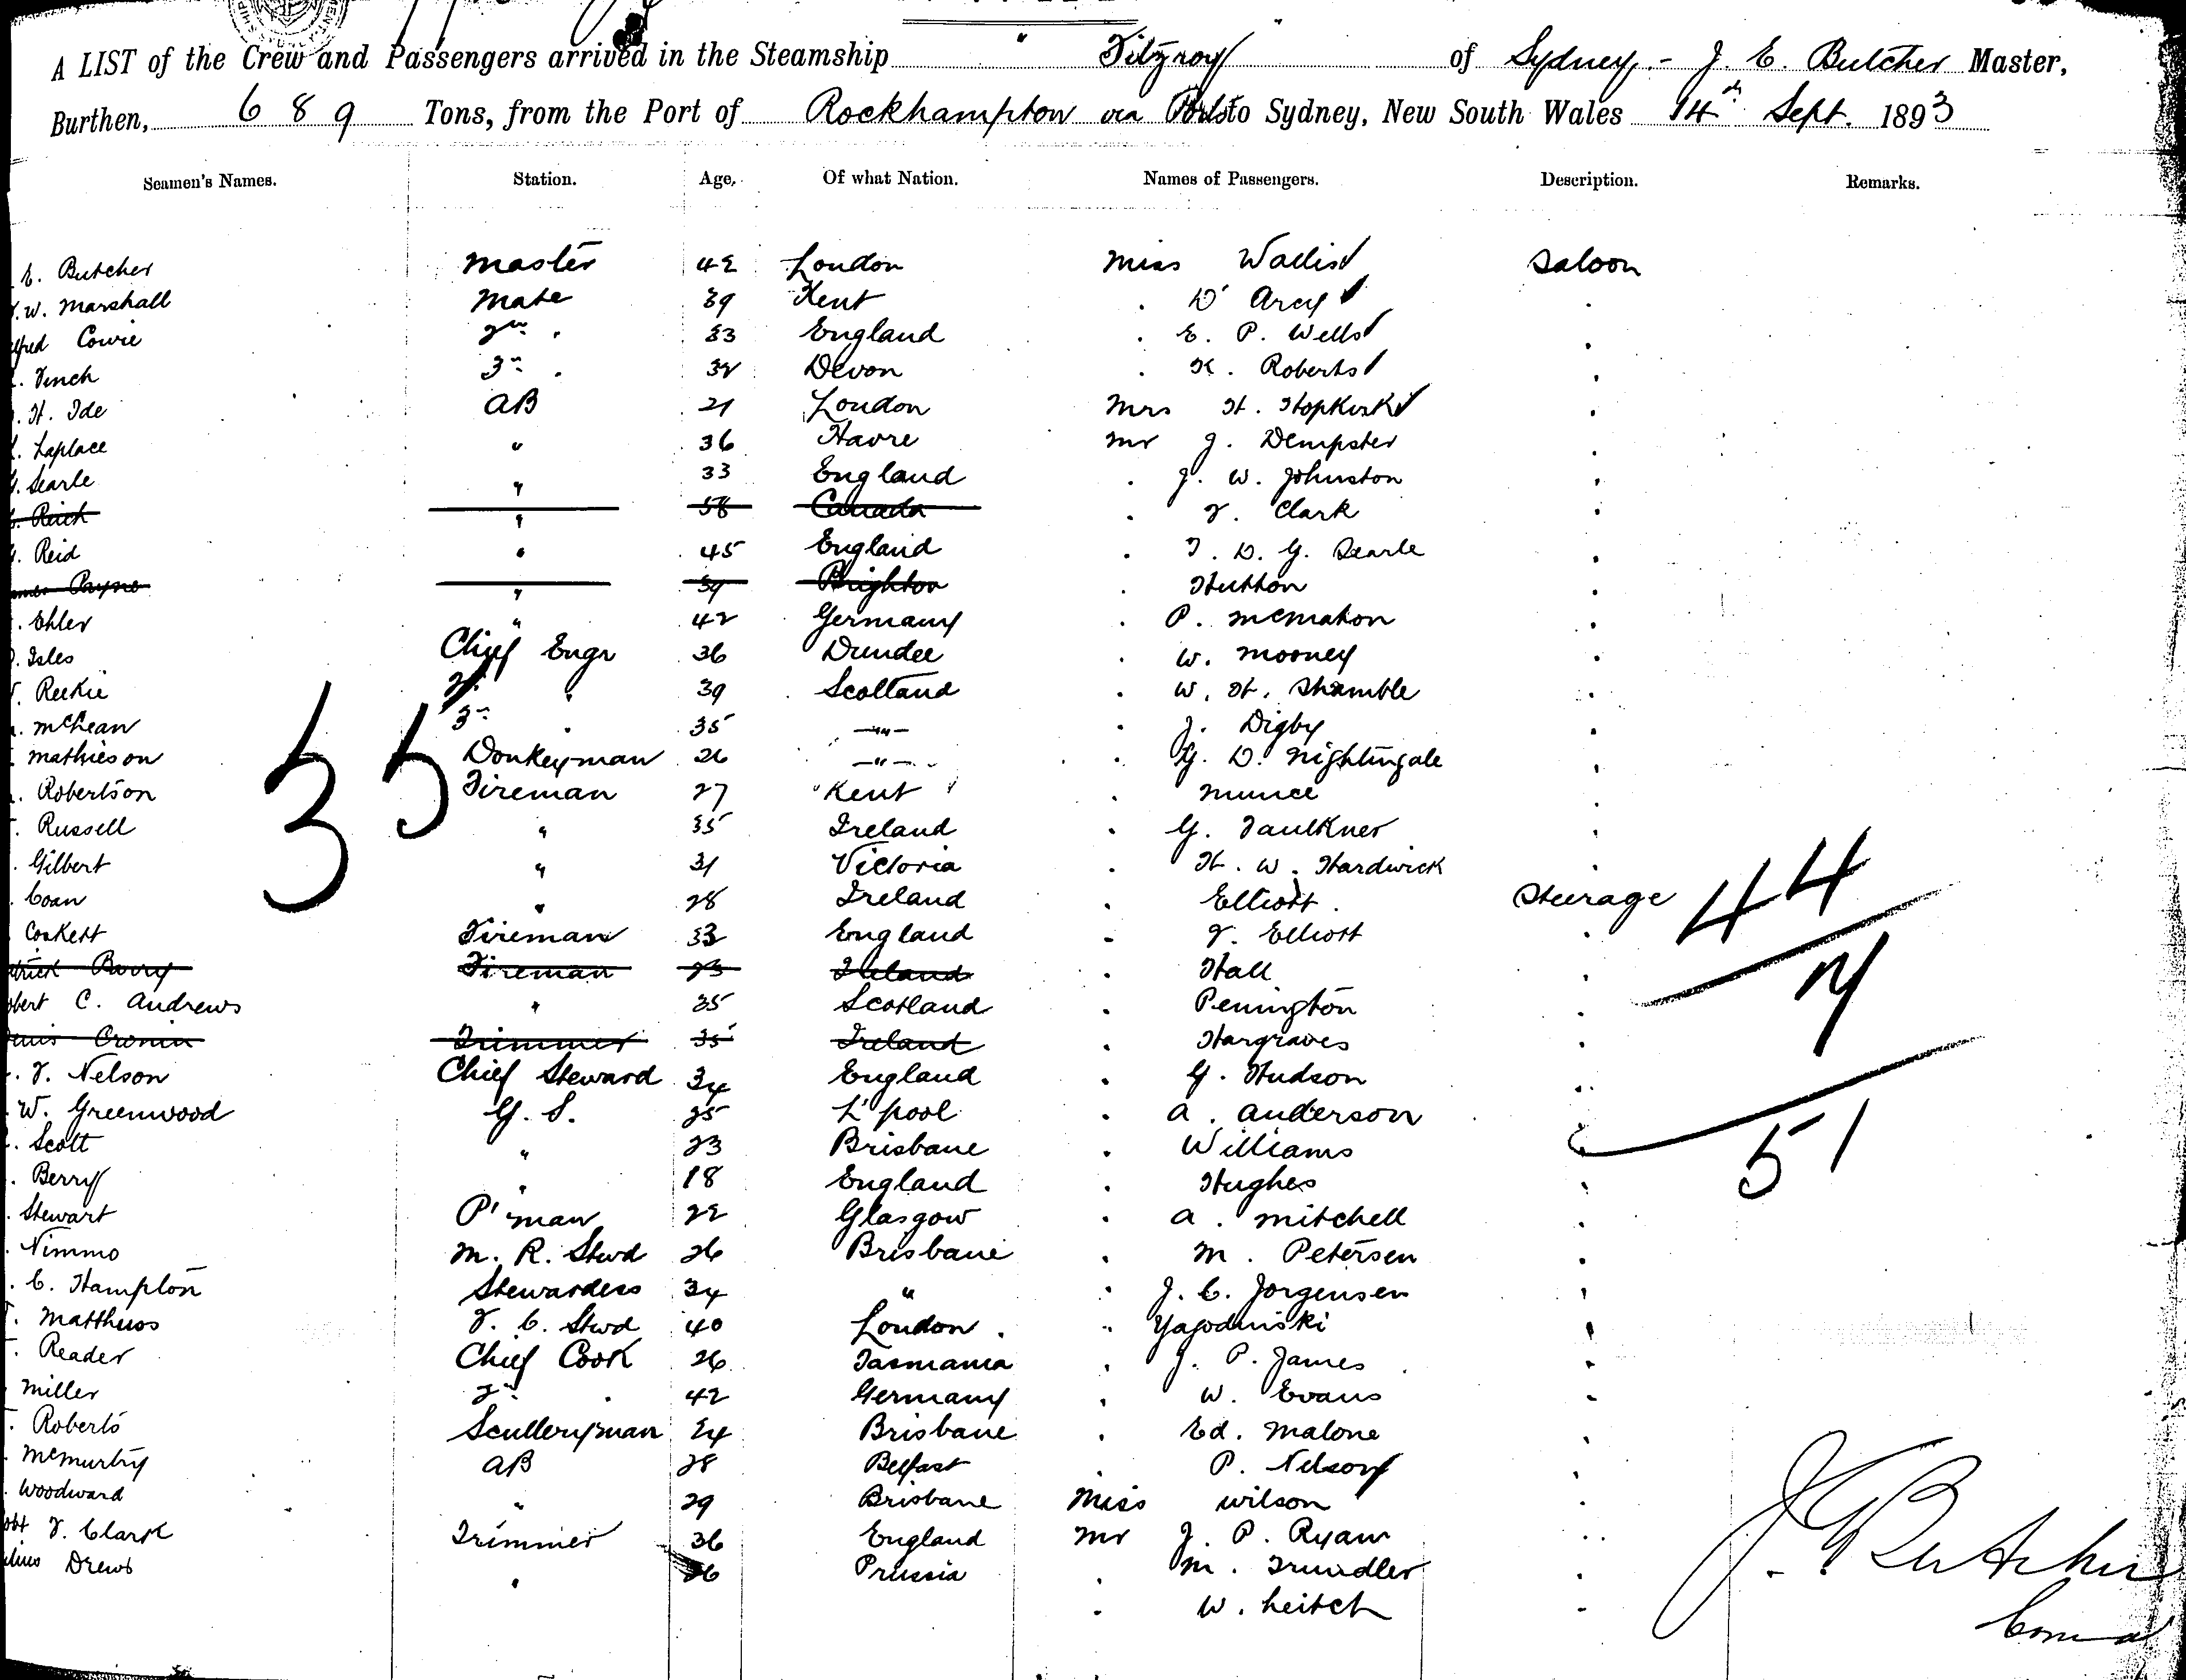 A LIST of the Crew and Passengers arrived in the Steamship " Fitzroy " of Sydney, - J. E. Butcher Master,
Burthen, 689 Tons, from the Port of Rockhampton via Ports to Sydney, New South Wales 14th Sept. 1893
Seamen's Names. Station. Age. Of what Nation. Names of Passengers. Description. Remarks.
E. Butcher master 42 London Miss Wallis Saloon
W. Marshall Mate 39 Kent . D'Arcy .
Cowie 2nd . 33 England . E. P. Wells .
Finch 3rd . 32 Devon . K. Roberts .
H. Ide AB 21 London Mrs H. Hopkirk .
Laplace " 36 Havre Mr J. Dempster .
Searle " 33 England . J. W. Johnston .
Reich " 58 Canada . F. Clark .
Reid " 45 England . T. D. G. Searle .
Payne " 39 Brighton . Hutton .
Ehler " 42 Germany . P. McMahon .
Isles Chief Engr 36 Dundee . W. Mooney .
Reekie 2nd " 39 Scotland . W. H. Shamble .
McLean 3rd . 35 -"- . J. Digby .
Mathieson Donkeyman 26 -"- . G. D. Nightingale .
Robertson Fireman 27 Kent . Munce .
Russell " 35 Ireland . G. Faulkner .
Gilbert " 31 Victoria . H. W. Hardwick .
Coan " 28 Ireland . Elliott . Steerage
Corkett Fireman 33 England . F. Elliott .
Barry Fireman 23 Ireland . Hall .
C. Andrews " 35 Scotland . Penington .
Cronin Trimmer 35 Ireland . Hargraves .
F. Nelson Chief Steward 34 England . G. Hudson .
W. Greenwood G. S. 25 L'pool . A. Anderson .
Scott " 23 Brisbane . Williams .
Berry " 18 England . Hughes .
Stewart P'man 22 Glasgow . A. Mitchell .
Nimmo M. R. Stwd 26 Brisbane . M. Petersen .
C. Hampton Stewardess 34 " . J. C. Jorgensen .
Matthews F. C. Stwd 40 London . Yagodinski .
Reader Chief Cook 26 Tasmania . J. P. James .
Miller 2nd . 42 Germany . W. Evans .
Roberts Sculleryman 24 Brisbane . Ed. Malone .
McMurtry AB 28 Belfast . P. Nelson .
Woodward " 29 Brisbane Miss Wilson .
F. Clark Trimmer 36 England Mr J. P. Ryan .
Drews " 26 Prussia . M. Trundler .
. W. Leitch .
35
44
7
51
J. E. Butcher